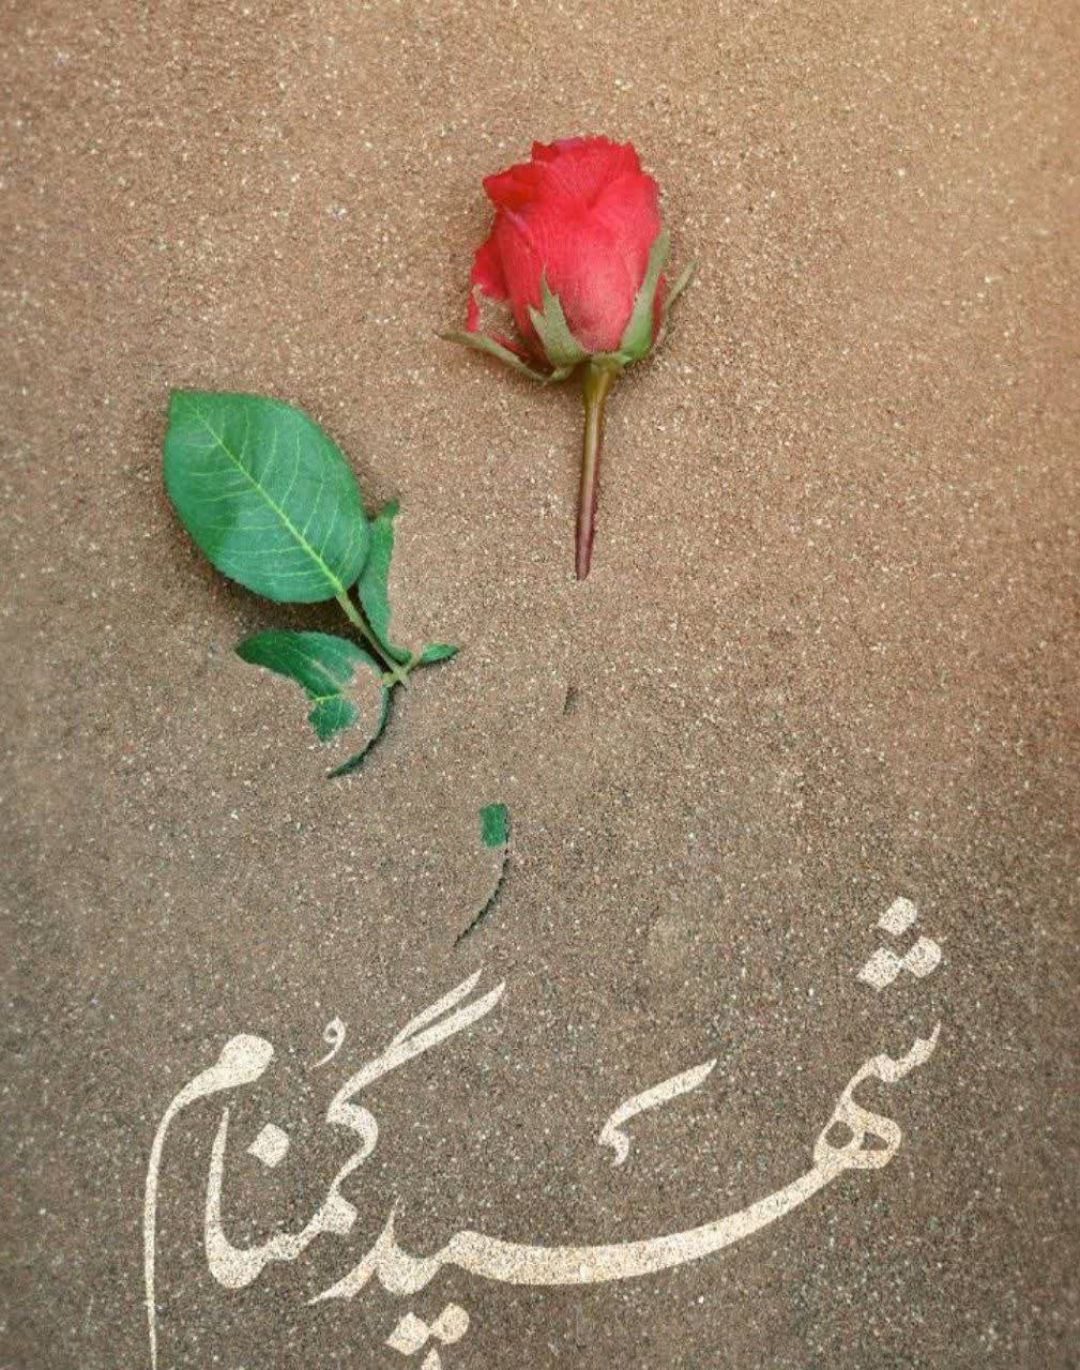 شهید گُمنام